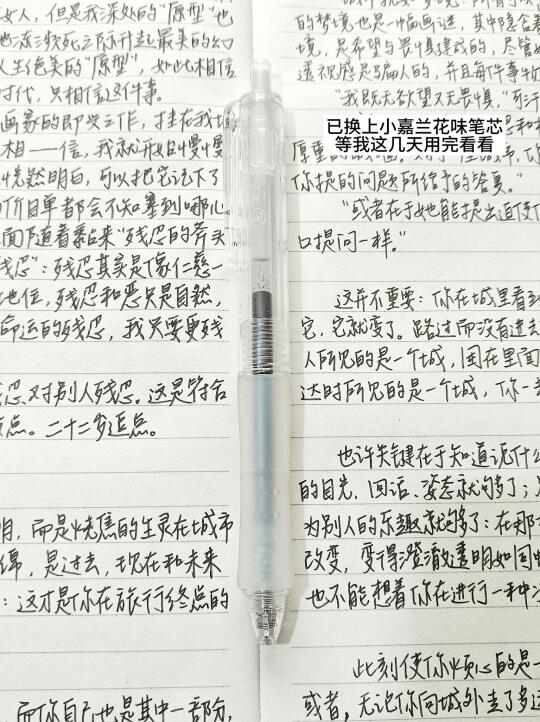 女人，但是我深处的“原型”也
人生绝美的“原型”，如此相信
时代，只相信这件事。
画家的即兴之作，挂在我
相一一信，我就开始慢慢
恍然明白，可以把它记下了
价目单都会不知塞到哪儿
面随着黏来“残忍的斧头
残忍”：残忍其实是像仁慈一
地位，残忍和恶只是自然，
命运的残忍，我只要更残
忍对别人残忍。这是符合
点。二十二岁
明，而是烧焦的生灵在城市
绵，是过去、现在和未来
：这才是你在旅行终点的
而你自己也是其中一部分，
的梦境也是一幅画谜，其中隐含着
境，是希望与畏惧建成的，尽管
透视感是骗人的，并且每件事物
“我既无欲望又无畏惧，”可汗
已换上小嘉兰花味笔芯
等我这几天用完看看
你提的问题所给予的答复。”
“或者在于她能提出迫使你
口提问一样。”
这并不重要：你在城里看到
它，它就变了。路过而没有进去
人所见的是一个城，困在里面
达时所见的是一个城，你一去
也许关键在于知道说什么
的目光，回话、姿态就够了；
为别人的乐趣就够了：在那
改变，变得澄澈透明如
也不能想着你在进行一种
此刻使你烦心的是一
或者，无论你向城外走了多远